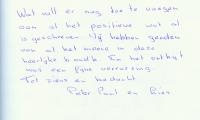 Wat valt er nog toe te voegen
aan al het positieve wat al
is geschreven. Wij hebben genoten
van al het moois in deze
heerlijke b and b. En het ontbijt
was een fijne verrassing
Tot ziens en bedankt
Peter Paul en